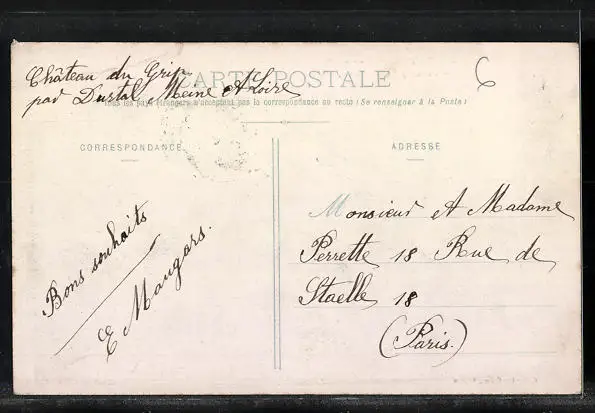 Château du Grip
par Durtal, Meine et Loire
CARTE POSTALE
Tous les pays étrangers n'acceptent pas la correspondance au recto (Se renseigner à la Poste)
CORRESPONDANCE
ADRESSE
Bons souhaits
E Maugars.
Monsieur et Madame
Perrette 18 Rue de
Staelle 18
(Paris.)